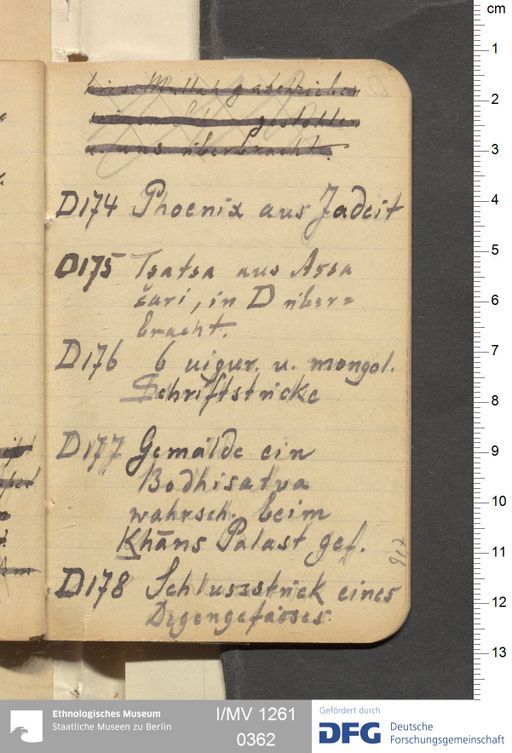 gestohlen
uns überbracht.
D174 Phoenix aus Jadeit
D175 Tsatsa aus Assa
čari, in D über=
bracht.
D176 6 uigur. u. mongol.
Schriftstücke
D177 Gemälde ein
Bodhisatva
wahrsch. beim
Khāns Palast gef.
D178 Schlussstück eines
Degengefässes.
cm
1
2
3
4
5
6
7
8
9
10
11
12
13
Ethnologisches Museum
Staatliche Museen zu Berlin
I/MV 1261
0362
Gefördert durch
DFG
Deutsche
Forschungsgemeinschaft